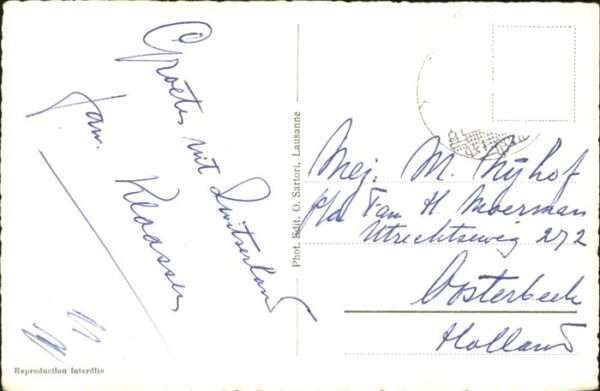 Groeten uit Switserland
fam. Klaassen
Phot. Edit. O. Sartori, Lausanne
Mej. M. Nijhof
p/a Fam H. Moerman
Utrechtseweg 272
Oosterbeek
Holland
Reproduction Interdite